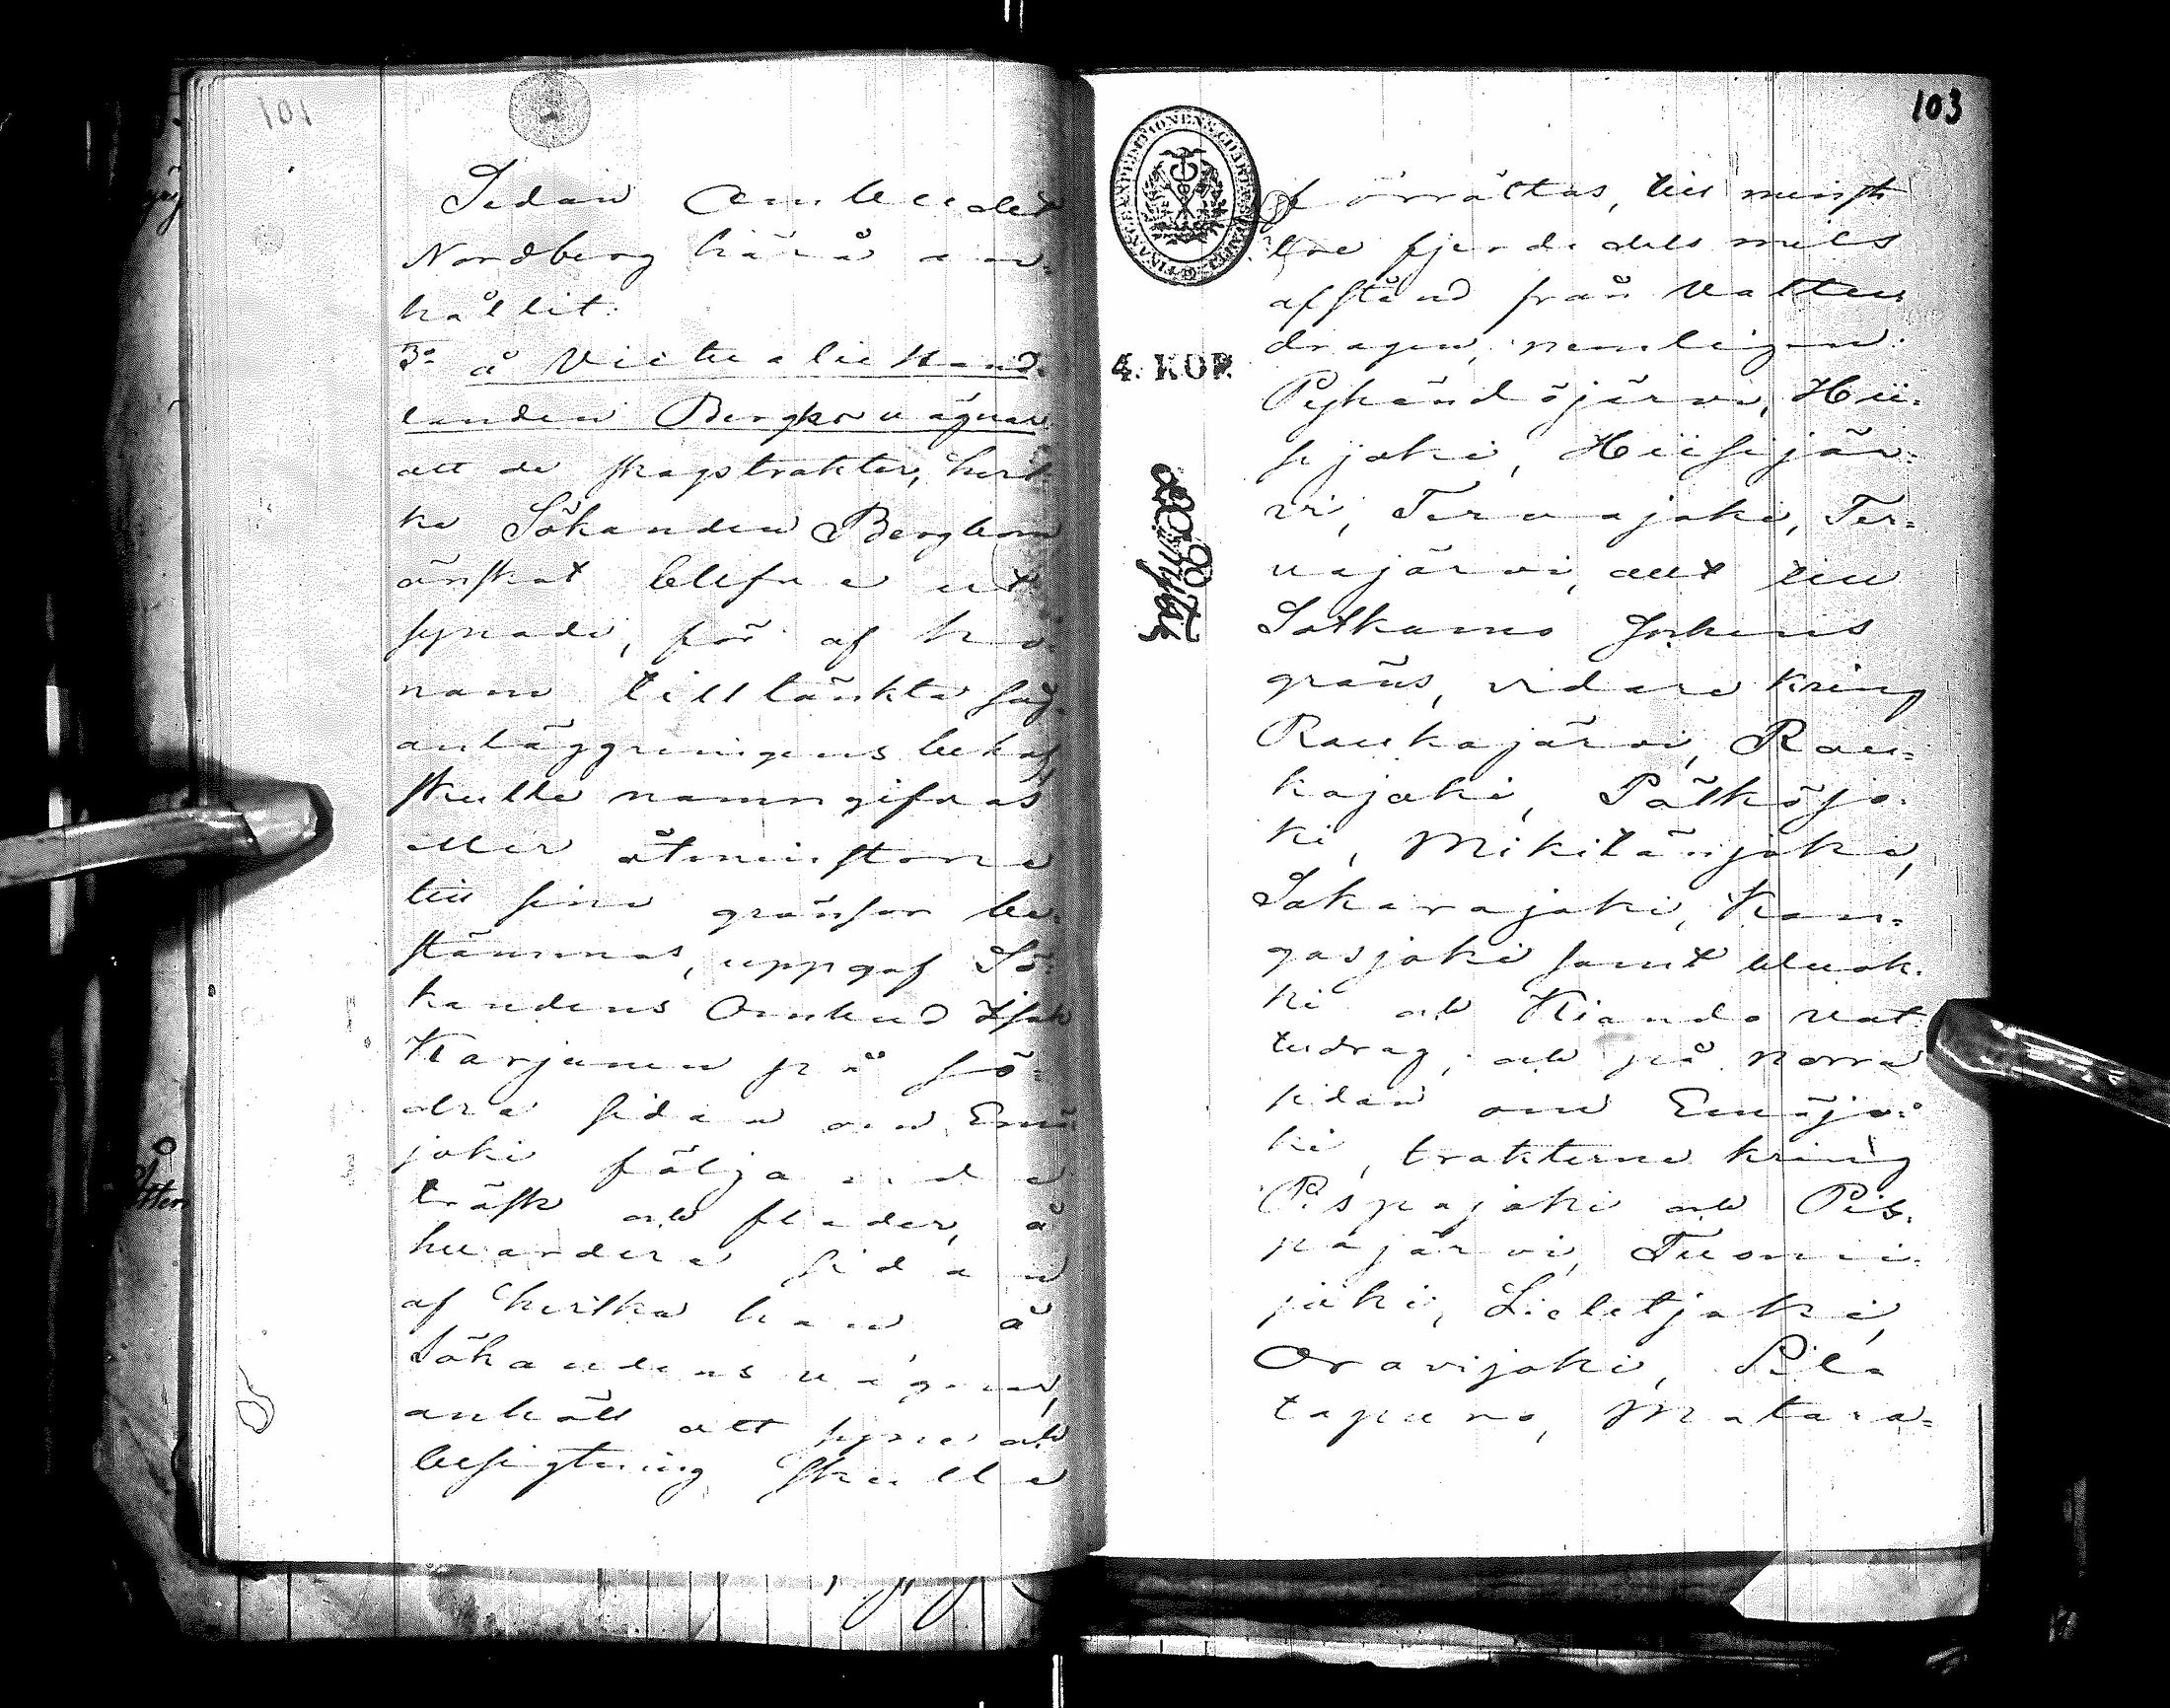 101
Sedan Ombudet
Nordberg härå an-
hållit:
3:o å Victualiehand-
landen Bergbom vägnar
att de skogstrakter, hvil-
ka Sökanden Bergbom
önskat blifva ut
synade, för af ho-
nom tilltänkta såg-
anläggningens behof
skulle namngifvas
eller åtminstone
till sina gränsor be-
stämmas, uppgaf Sö-
kandens Ombud Isak
Karjunen på sö-
dra sidan om Emä
joki följande
träsk och floder, å
hvardera sidan
af hvilka han å
Sökandens vägnar,
anhöll att syne och
besigtning skulle
103
FINANS EXPEDITIONENS CHARTÆ
4. KOP.
förrättas, till minst
tre fjerdedels mils
afstånd från vatten
dragen, nemligen:
Pyhändöjärvi, Hii-
sijoki, Hiisijär-
vi, Tervajoki, Ter-
vajärvi, allt till
Sotkamo Sockens
gräns, vidare kring
Raukajärvi, Rau-
kajoki, Pölköjo-
ki, Mikitänjoki,
Sakarajoki, Kan-
gasjoki samt
ki och Kianda vat-
tudrag, och på norra
sidan om Emäjo-
ki, trakterne kring
Pispajoki och Pis-
pajärvi, Tuomi-
joki, Lieletjoki,
Oravijoki, Pila
tapuro, Matara-